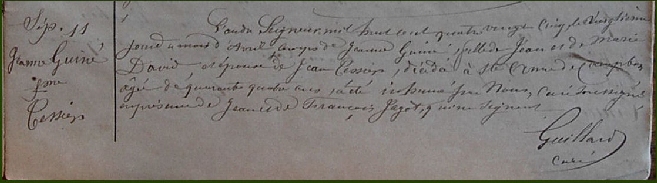 Sep. 11
Jeanne Guiné
fme
Tessier
L'an du Seigneur mil huit cent quatre vingt cinq le vingtième
jour du mois d'Avril corps de Jeanne Guiné, fille de Jean et de Marie
David, et épouse de Jean Tessier, décédé à Ste Anne de Campbon
agé de quarante quatre ans a été inhumé par Nous, Curé soussigné
en présence de Jean et de François Pagot, qui ne signent
Guillard
curé